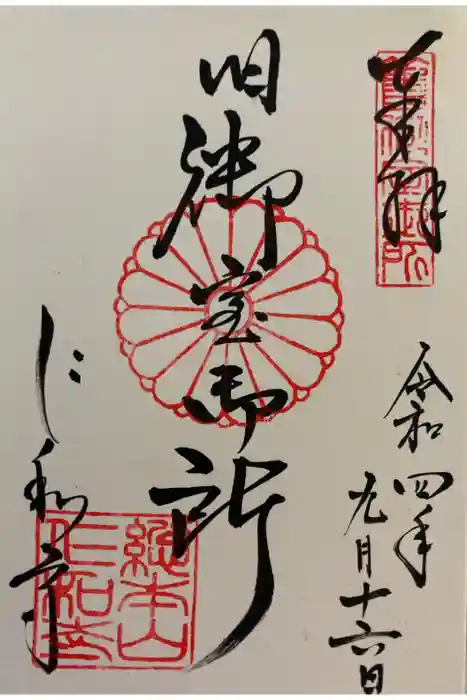 奉拝
令和四年
九月十六日
旧御室御所
仁和寺
總本山
仁和寺